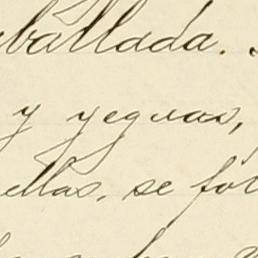 ballada.
y yeguas,
ellas. se for